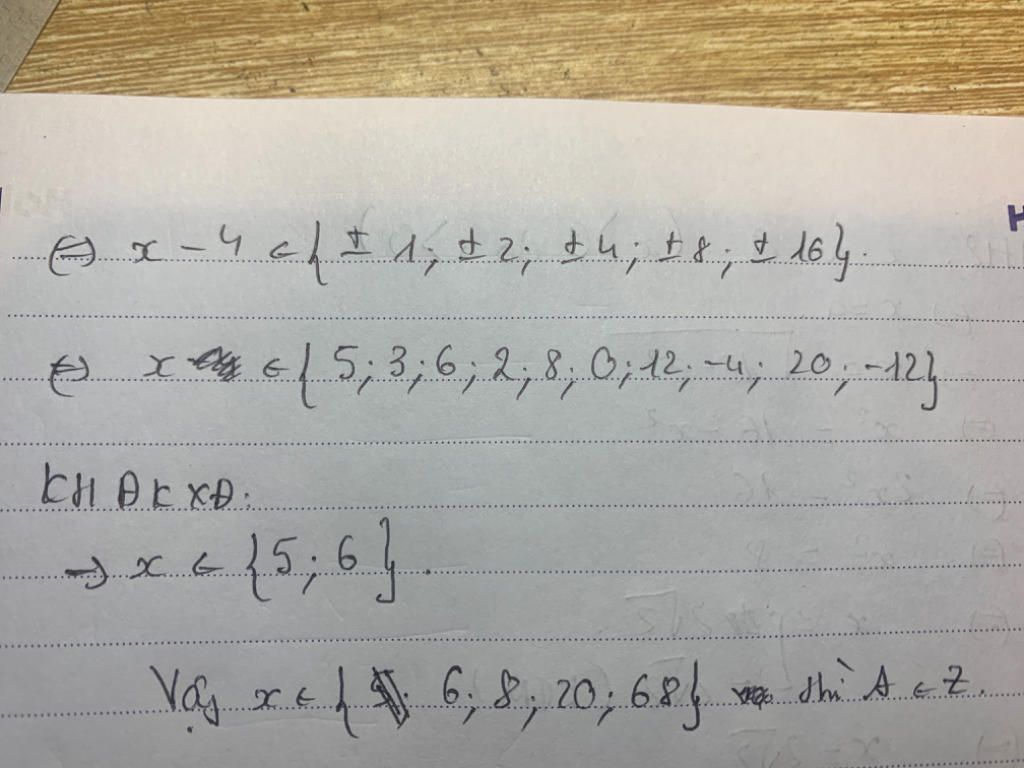 ⇔ x - 4 ∈ { ± 1; ± 2; ± 4; ± 8; ± 16}.
⇔ x ∈ { 5; 3; 6; 2; 8; 0; 12; -4; 20; -12}
KH ĐKXĐ:
→ x ∈ {5; 6}.
Vậy x ∈ { ; 6; 8; 20; 68} thì A ∈ Z.